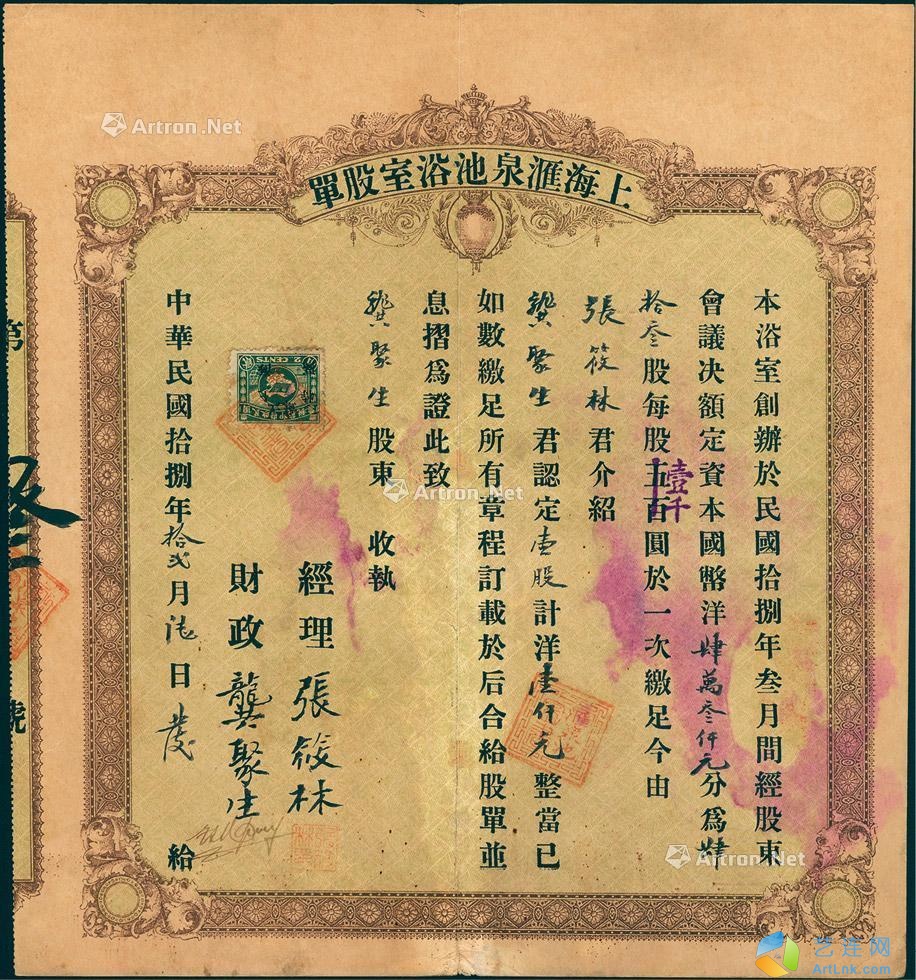 上海滙泉池浴室股單
本浴室創辦於民國拾捌年叁月間經股東
會議決額定資本國幣洋肆萬叁仟元分為肆
拾叁股每股五百圓於一次繳足今由
壹千
張筱林君介紹
龔聚生君認定壹股計洋壹仟元整當已
如數繳足所有章程訂載於后合給股單並
息摺為證此致
龔聚生股東 收執
經理 張筱林
財政 龔聚生
中華民國拾捌年拾弍月 日 給
2 CENTS
第
號
Artron.Net
Artron.Net
Artron.Net
艺连网
ArtLnk.com